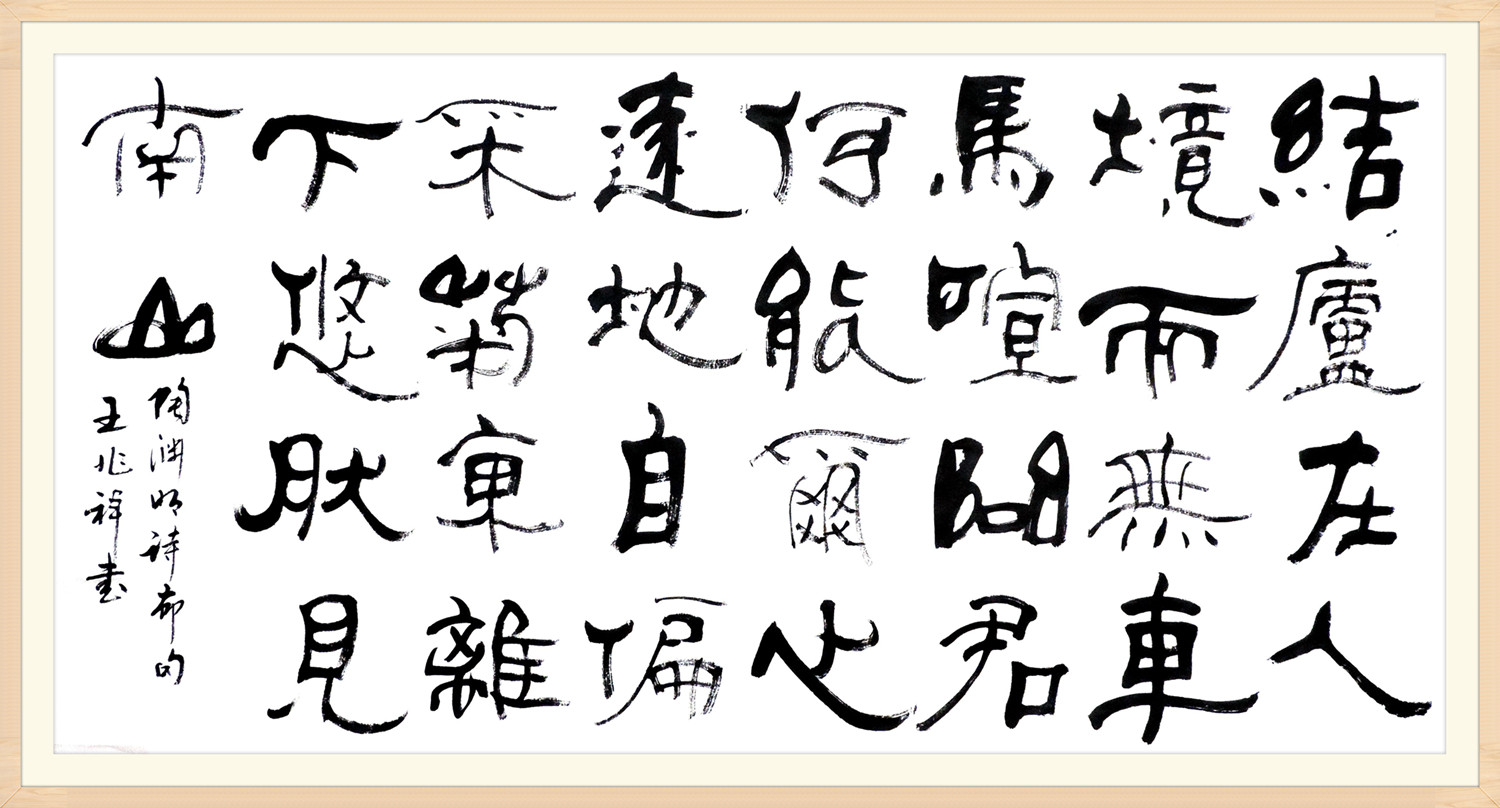 結廬在人
境而無車
馬喧問君
何能爾心
遠地自偏
采菊東離
下悠肰見
南山
陶渊明詩節句
王兆祥書